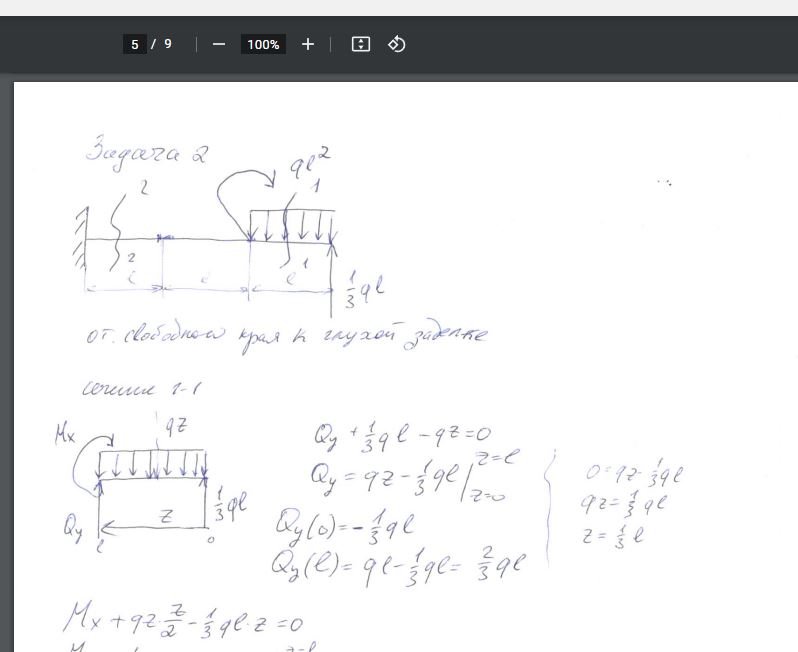 5 / 9
100%
Задача 2
ql²
2
1
2
l
l
l
1
1/3 ql
от. свободного края к глухой заделке
сечение 1-1
Mx
qz
1/3 ql
Qy
z
l
0
Qy + 1/3 ql - qz = 0
Qy = qz - 1/3 ql | z=l z=0
Qy(0) = - 1/3 ql
Qy(l) = ql - 1/3 ql = 2/3 ql
0 = qz - 1/3 ql
qz = 1/3 ql
z = 1/3 l
Mx + qz · z/2 - 1/3 ql · z = 0